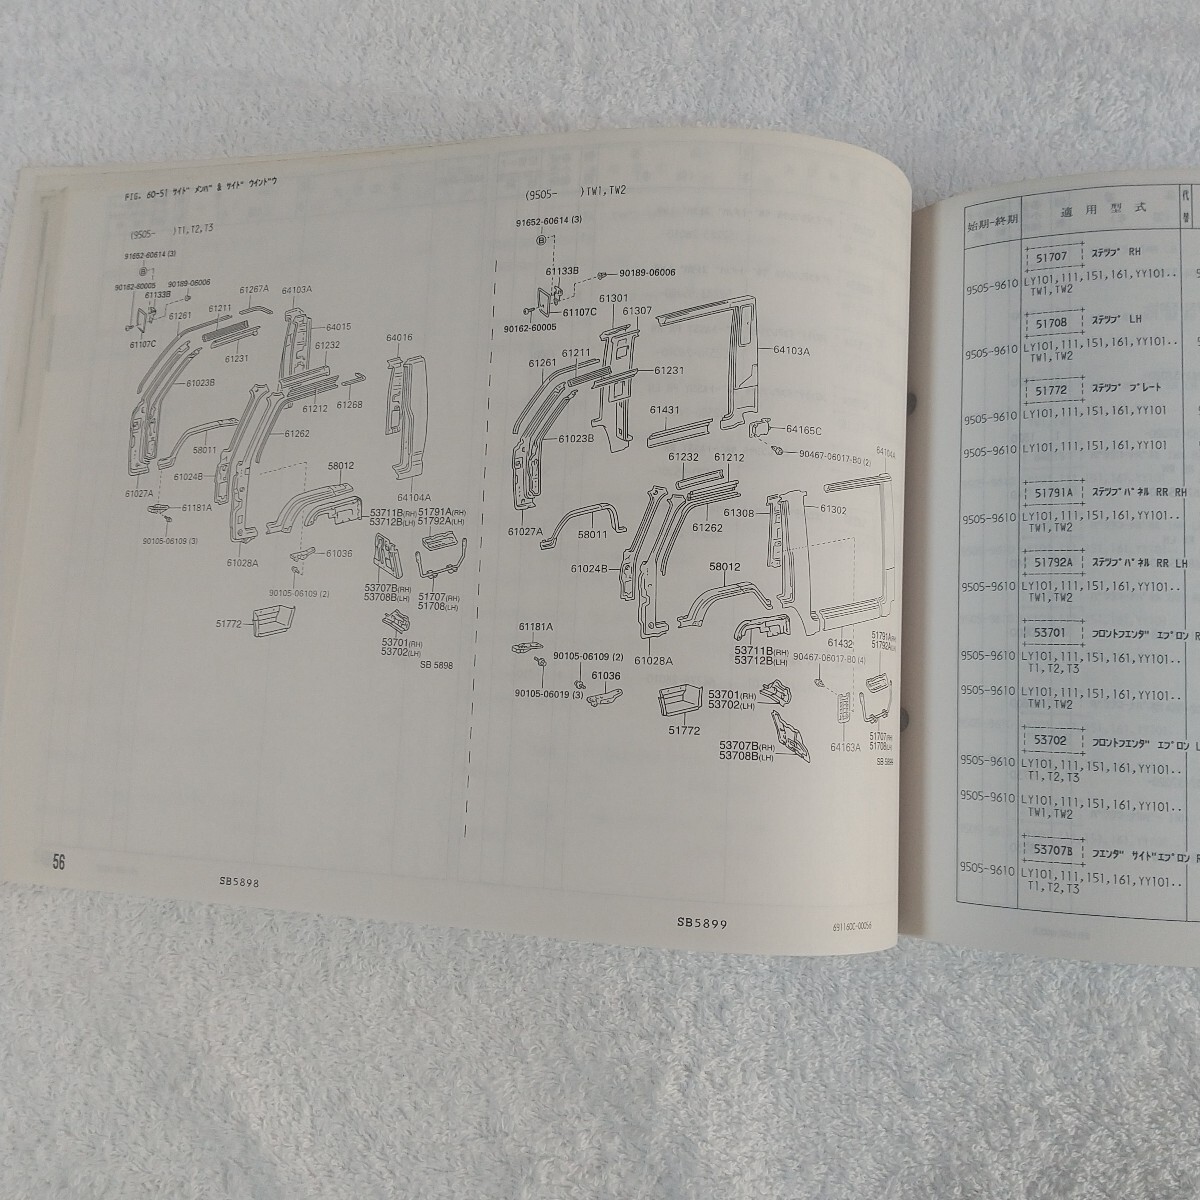 FIG. 60-51 ｻｲﾄﾞ ﾒﾝﾊﾞ & ｻｲﾄﾞ ｳｲﾝﾄﾞｳ
(9505-    )T1,T2,T3
91652-60614 (3)
B
90162-60005
61133B
90189-06006
61107C
61261
61211
61267A
64103A
64015
61232
61231
64016
61023B
61212
61268
61262
58011
61024B
58012
61027A
61181A
90105-06109 (3)
64104A
53711B(RH)
53712B(LH)
51791A(RH)
51792A(LH)
61028A
61036
90105-06109 (2)
53707B(RH)
53708B(LH)
51707(RH)
51708(LH)
51772
53701(RH)
53702(LH)
SB 5898
(9505-    )TW1,TW2
91652-60614 (3)
B
61133B
90189-06006
61107C
90162-60005
61301
61307
64103A
61261
61211
61231
61431
64165C
90467-06017-B0 (2)
61023B
61232
61212
64104A
61027A
58011
61262
61308
61302
61024B
58012
61181A
61028A
53711B(RH)
53712B(LH)
61432
90467-06017-B0 (4)
51791A(RH
51792A
90105-06109 (2)
90105-06019 (3)
61036
51772
53701(RH)
53702(LH)
53707B(RH)
53708B(LH)
64163A
51707(RH
51708(LH
SB 5899
56
SB5898
SB5899
691160C-00056
始期-終期
適 用 型 式
代替
51707 ｽﾃﾂﾌﾟ RH
9505-9610 LY101,111,151,161,YY101..
TW1,TW2
51708 ｽﾃﾂﾌﾟ LH
9505-9610 LY101,111,151,161,YY101..
TW1,TW2
51772 ｽﾃﾂﾌﾟ ﾌﾟﾚｰﾄ
9505-9610 LY101,111,151,161,YY101
9505-9610 LY101,111,151,161,YY101
51791A ｽﾃﾂﾌﾟﾊﾟﾈﾙ RR RH
9505-9610 LY101,111,151,161,YY101..
TW1,TW2
51792A ｽﾃﾂﾌﾟﾊﾟﾈﾙ RR LH
9505-9610 LY101,111,151,161,YY101..
TW1,TW2
53701 ﾌﾛﾝﾄﾌｴﾝﾀﾞ ｴﾌﾟﾛﾝ R
9505-9610 LY101,111,151,161,YY101..
T1,T2,T3
9505-9610 LY101,111,151,161,YY101..
TW1,TW2
53702 ﾌﾛﾝﾄﾌｴﾝﾀﾞ ｴﾌﾟﾛﾝ L
9505-9610 LY101,111,151,161,YY101..
T1,T2,T3
9505-9610 LY101,111,151,161,YY101..
TW1,TW2
53707B ﾌｴﾝﾀﾞ ｻｲﾄﾞｴﾌﾟﾛﾝ R
9505-9610 LY101,111,151,161,YY101..
T1,T2,T3